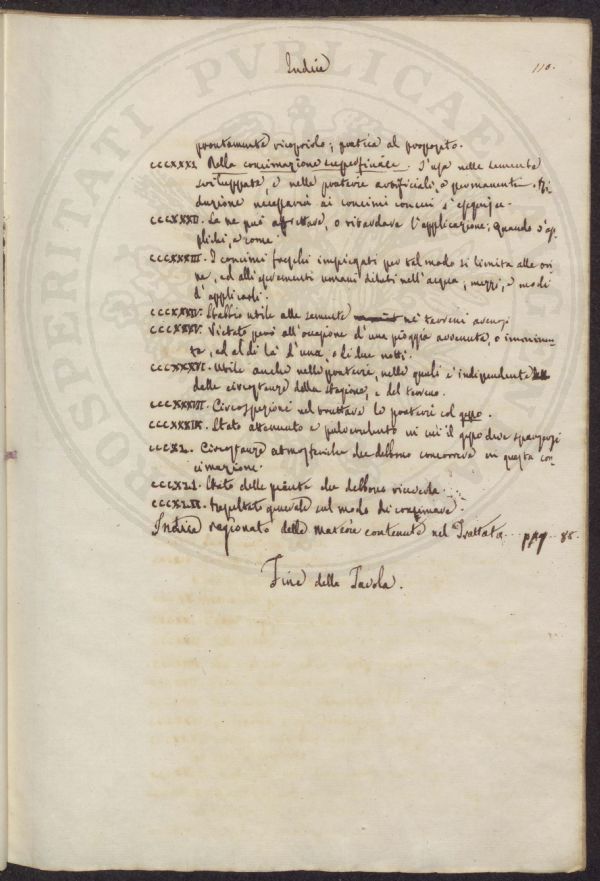 Indice
110.
prontamente ricoprirlo; pratica al proposito.
CCCXXXI. Della concimazione superficiale. S'usa nelle semente
sviluppate, e nelle praterie artificiali, o permanenti. Ri-
duzione necessaria ai concimi con cui s'eseguisce.
CCCXXXII. Se ne può affrettare, o ritardare l'applicazione; quando s'ap-
plichi, e come.
CCCXXXIII. I concimi freschi impiegati per tal modo si limita alle ori-
ne, ed alli escrementi umani diluti nell'acqua; mezzi, e modi
d'applicarli.
CCCXXXIV. Stabbio utile alle semente ne' terreni
CCCXXXV. Vietato però all'occasione d'una pioggia avvenuta, o imminen-
ta, ed al di là d'una, o di due notti.
CCCXXXVI. Utile anche nelle praterie, nelle quali è indipendente
dalle circostanze della stagione, e del terreno.
CCCXXXVII. Circospezione nel trattare le praterie col gesso.
CCCXXXIX. Stato attenuato e pulverulento in cui il gesso deve spargersi
CCCXL. Circostanze atmosferiche che debbono concorrere in questa con-
cimazione.
CCCXLI. Stato delle piante che debbono riceverla.
CCCXLII. Risultato generale sul modo di concimare.
Indice ragionato delle materie contenute nel Trattato... pag. 88.
Fine della Tavola.
PROSPERITATI PVBLICAE